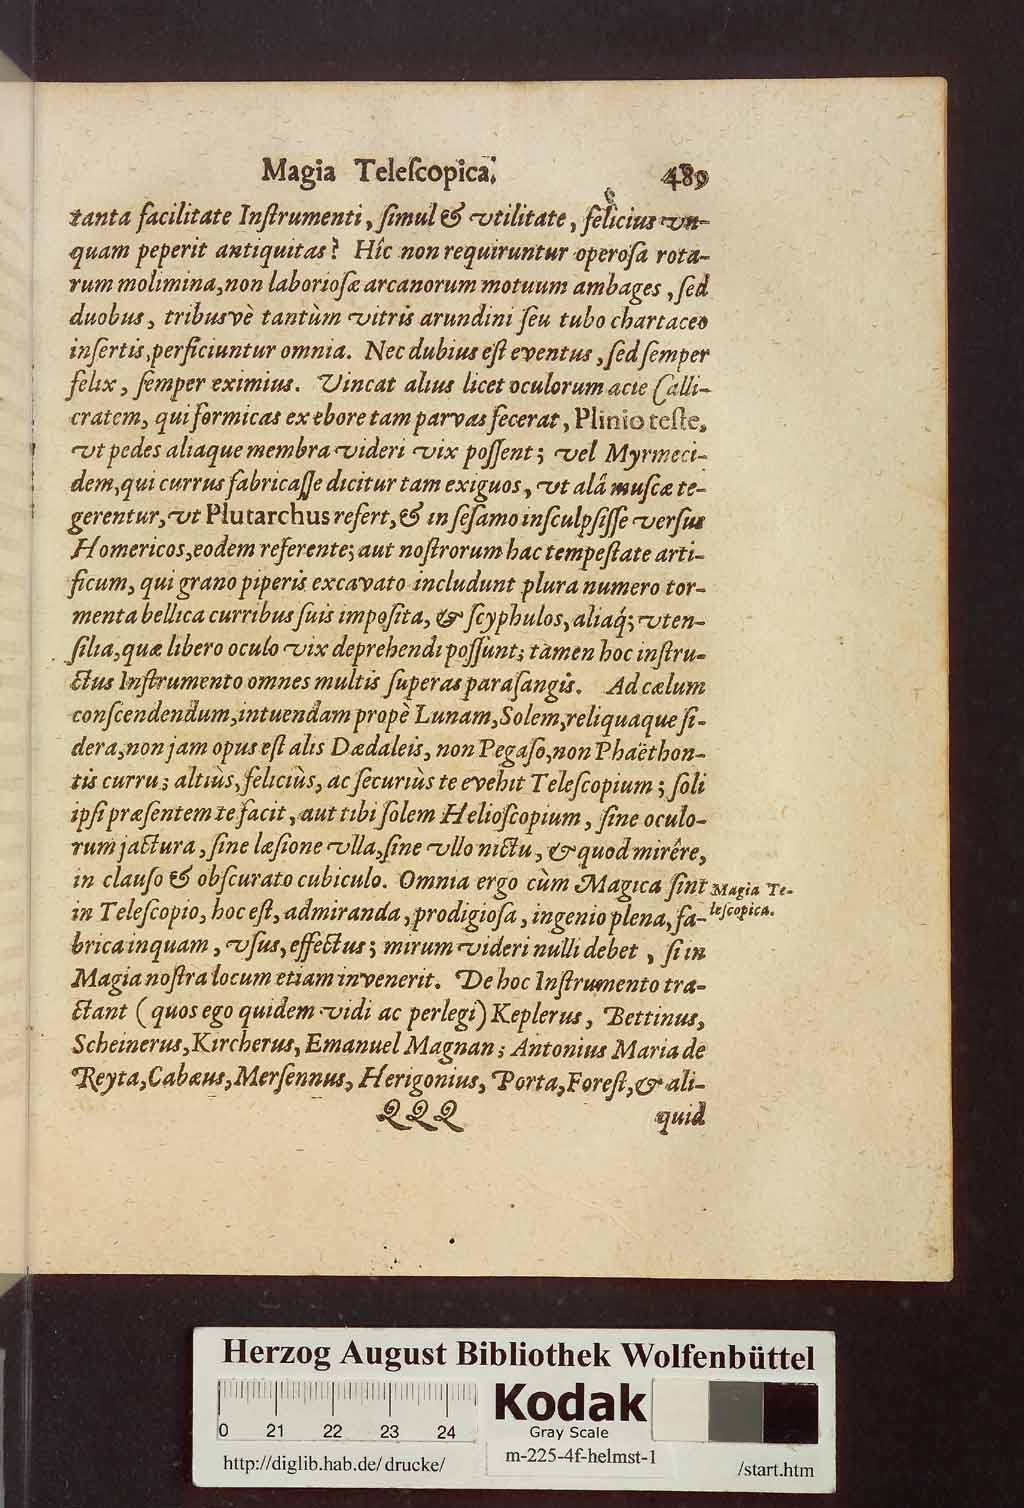 Magia Teleſcopica. 489
tanta facilitate Inſtrumenti, ſimul & vtilitate, felicius vn-
quam peperit antiquitas? Hîc non requiruntur operoſa rota-
rum molimina, non laborioſæ arcanorum motuum ambages, ſed
duobus, tribusvè tantùm vitris arundini ſeu tubo chartaceo
inſertis, perficiuntur omnia. Nec dubius eſt eventus, ſed ſemper
felix, ſemper eximius. Vincat alius licet oculorum acie Calli-
cratem, qui formicas ex ebore tam parvas fecerat, Plinio teſte,
vt pedes aliaque membra videri vix poſſent; vel Myrmeci-
dem, qui currus fabricaſſe dicitur tam exiguos, vt alâ muſcæ te-
gerentur, vt Plutarchus refert, & in ſeſamo inſculpſiſſe verſus
Homericos, eodem referente; aut noſtrorum hac tempeſtate arti-
ficum, qui grano piperis excavato includunt plura numero tor-
menta bellica curribus ſuis impoſita, & ſcyphulos, aliaq́; vten-
ſilia, quæ libero oculo vix deprehendi poſſunt; tàmen hoc inſtru-
ctus Inſtrumento omnes multis ſuperas paraſangis. Ad cælum
conſcendendum, intuendam propè Lunam, Solem, reliquaque ſi-
dera, non jam opus eſt alis Dædaleis, non Pegaſo, non Phaëthon-
tis curru; altiùs, feliciùs, ac ſecuriùs te evehit Teleſcopium; ſoli
ipſi præſentem te facit, aut tibi ſolem Helioſcopium, ſine oculo-
rum jactura, ſine læſione vlla, ſine vllo nictu, & quod mirêre,
in clauſo & obſcurato cubiculo. Omnia ergo cùm Magica ſint
Magia Te-
leſcopica.
in Teleſcopio, hoc eſt, admiranda, prodigioſa, ingenio plena, fa-
brica inquam, vſus, effectus; mirum videri nulli debet, ſi in
Magia noſtra locum etiam invenerit. De hoc Inſtrumento tra-
ctant (quos ego quidem vidi ac perlegi) Keplerus, Bettinus,
Scheinerus, Kircherus, Emanuel Magnan; Antonius Maria de
Reyta, Cabæus, Merſennus, Herigonius, Porta, Foreſt, & ali-
QQQ quid
Herzog August Bibliothek Wolfenbüttel
0 21 22 23 24
Kodak
Gray Scale
http://diglib.hab.de/drucke/
m-225-4f-helmst-1
/start.htm